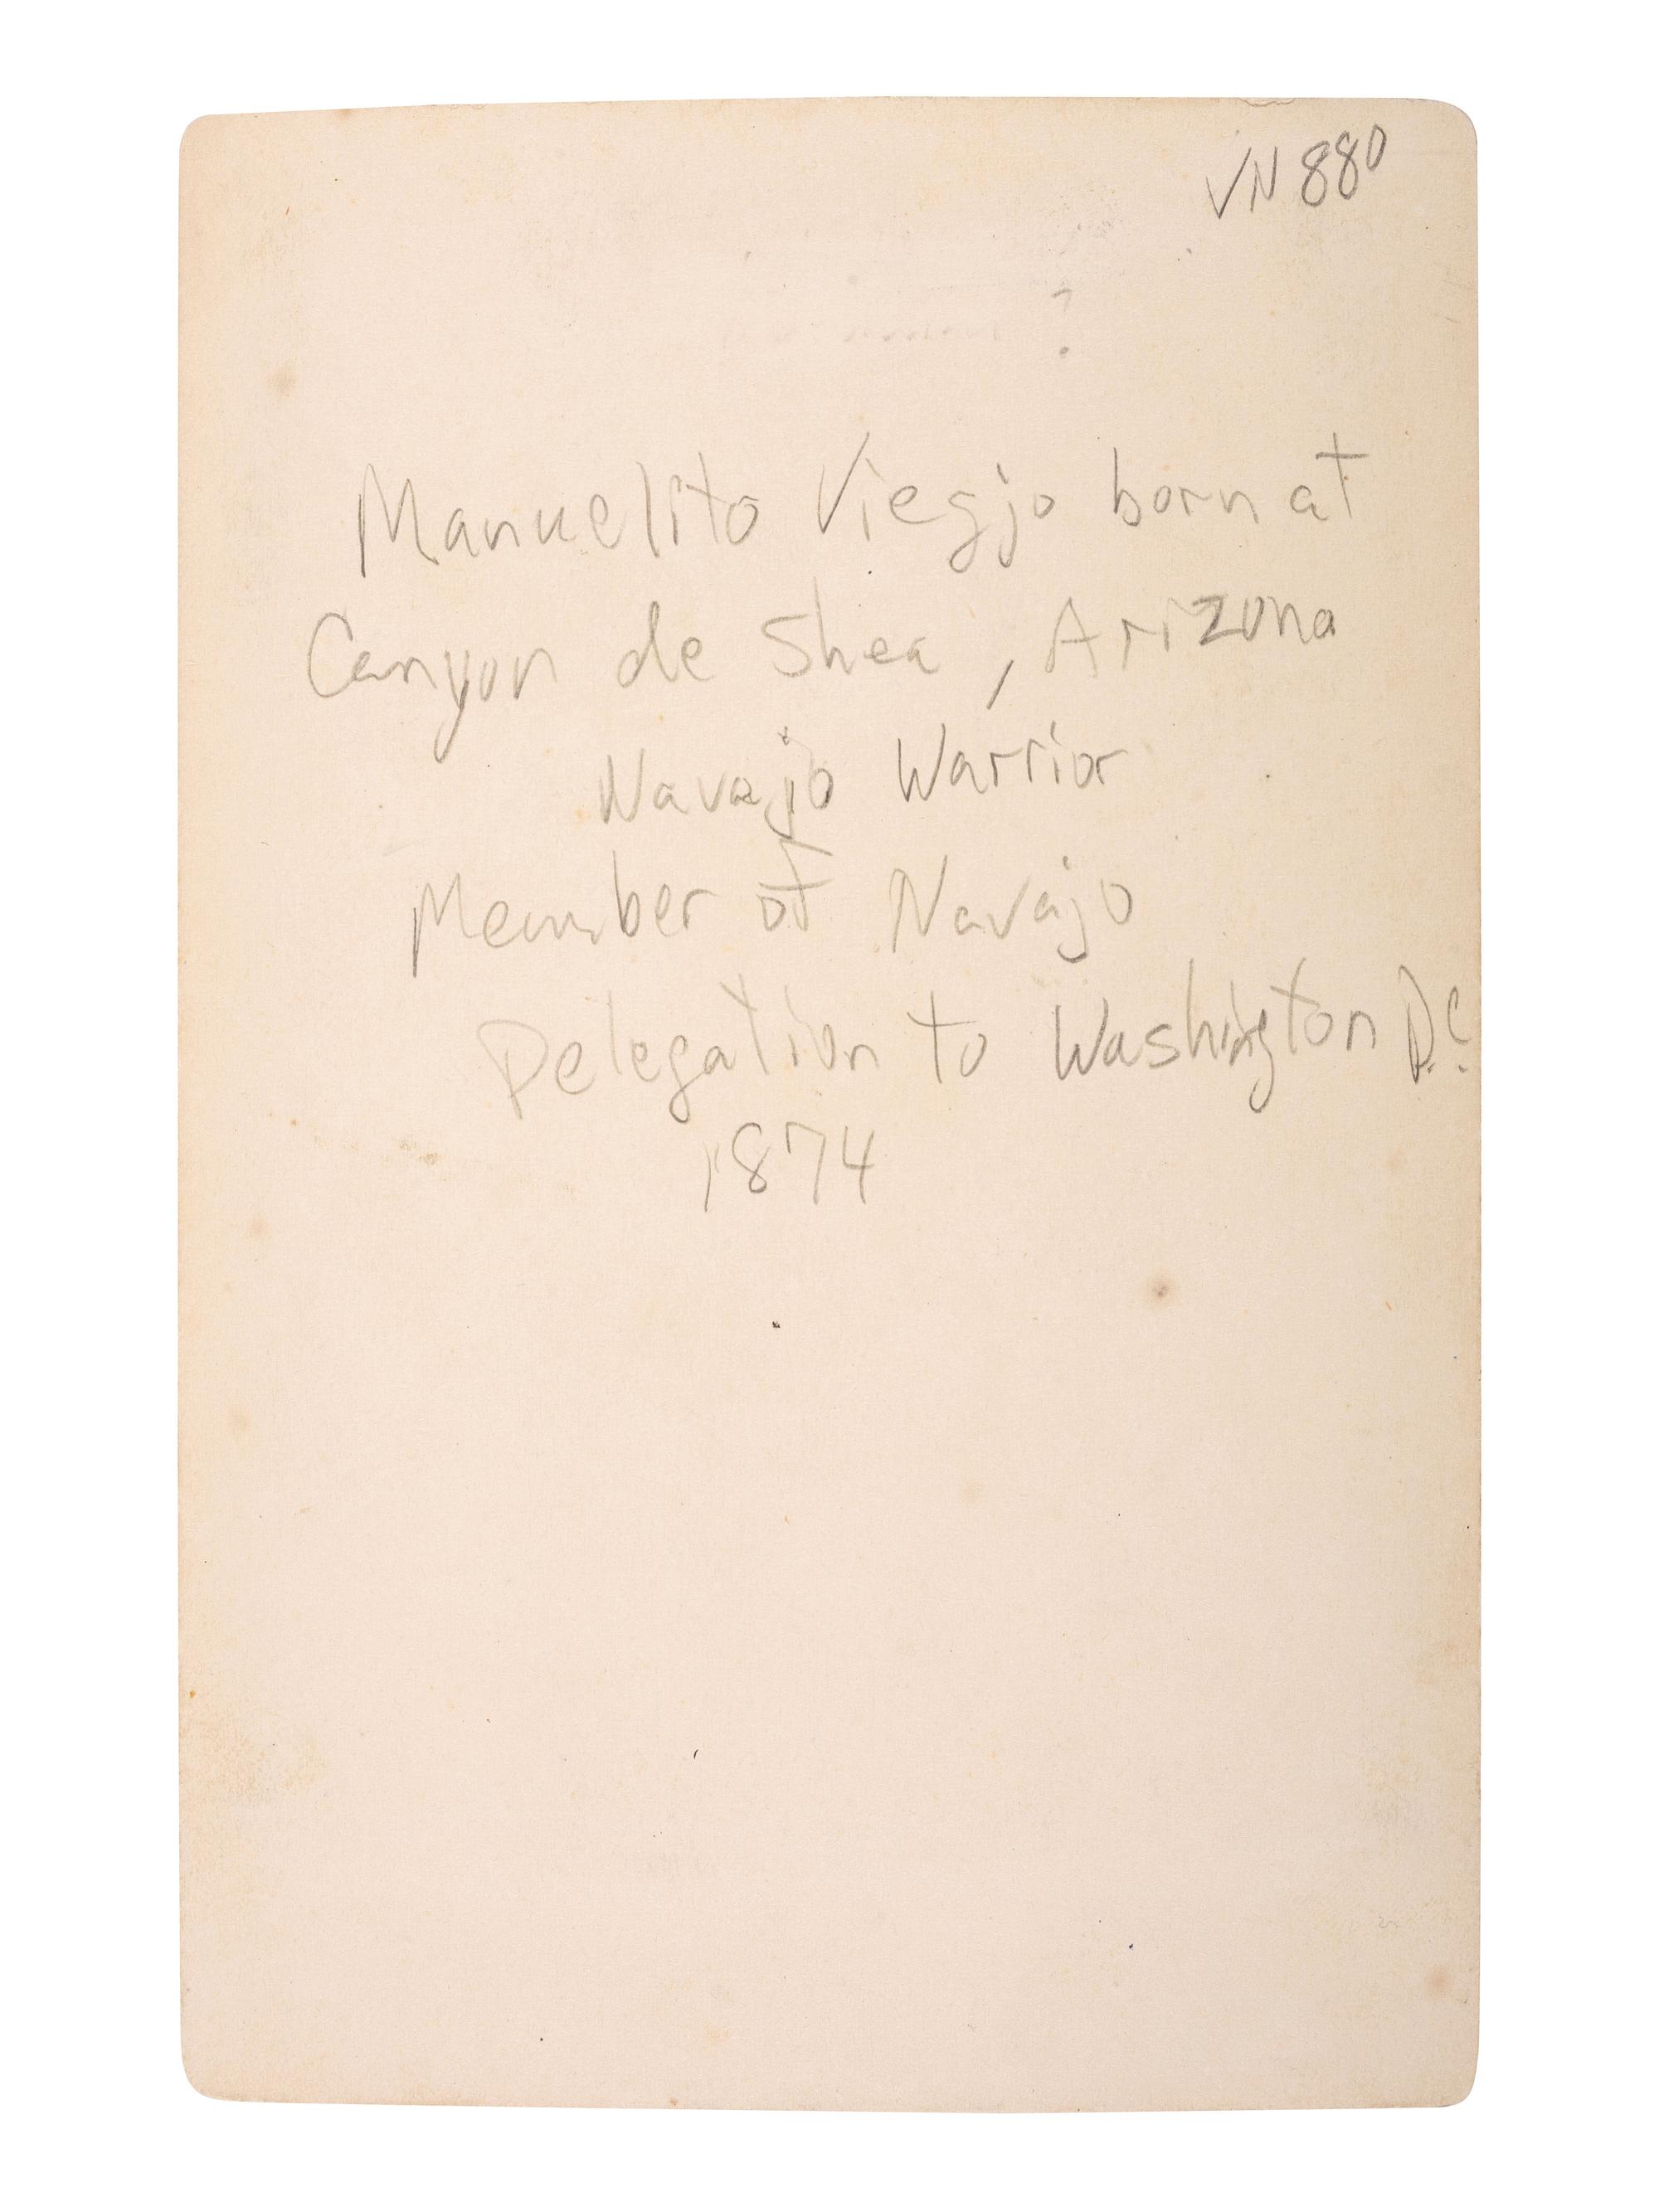 VN 880
?
Manuelito Viegjo born at
Canyon de Shea, Arizona
Navajo Warrior
Member of Navajo
Delegation to Washington D.C.
1874